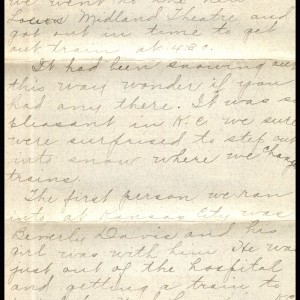 we went to the new
Loew's Midland Theatre and
got out in time to get
our train at 4:30.
It had been snowing out
this way wonder if you
had any there. It was so
pleasant in K.C. we sure
were surprised to step out
into snow where we change
trains.
The first person we ran
into at Kansas City was
Beverly Davis and his
girl was with him. He was
just out of the hospital
and getting a train to